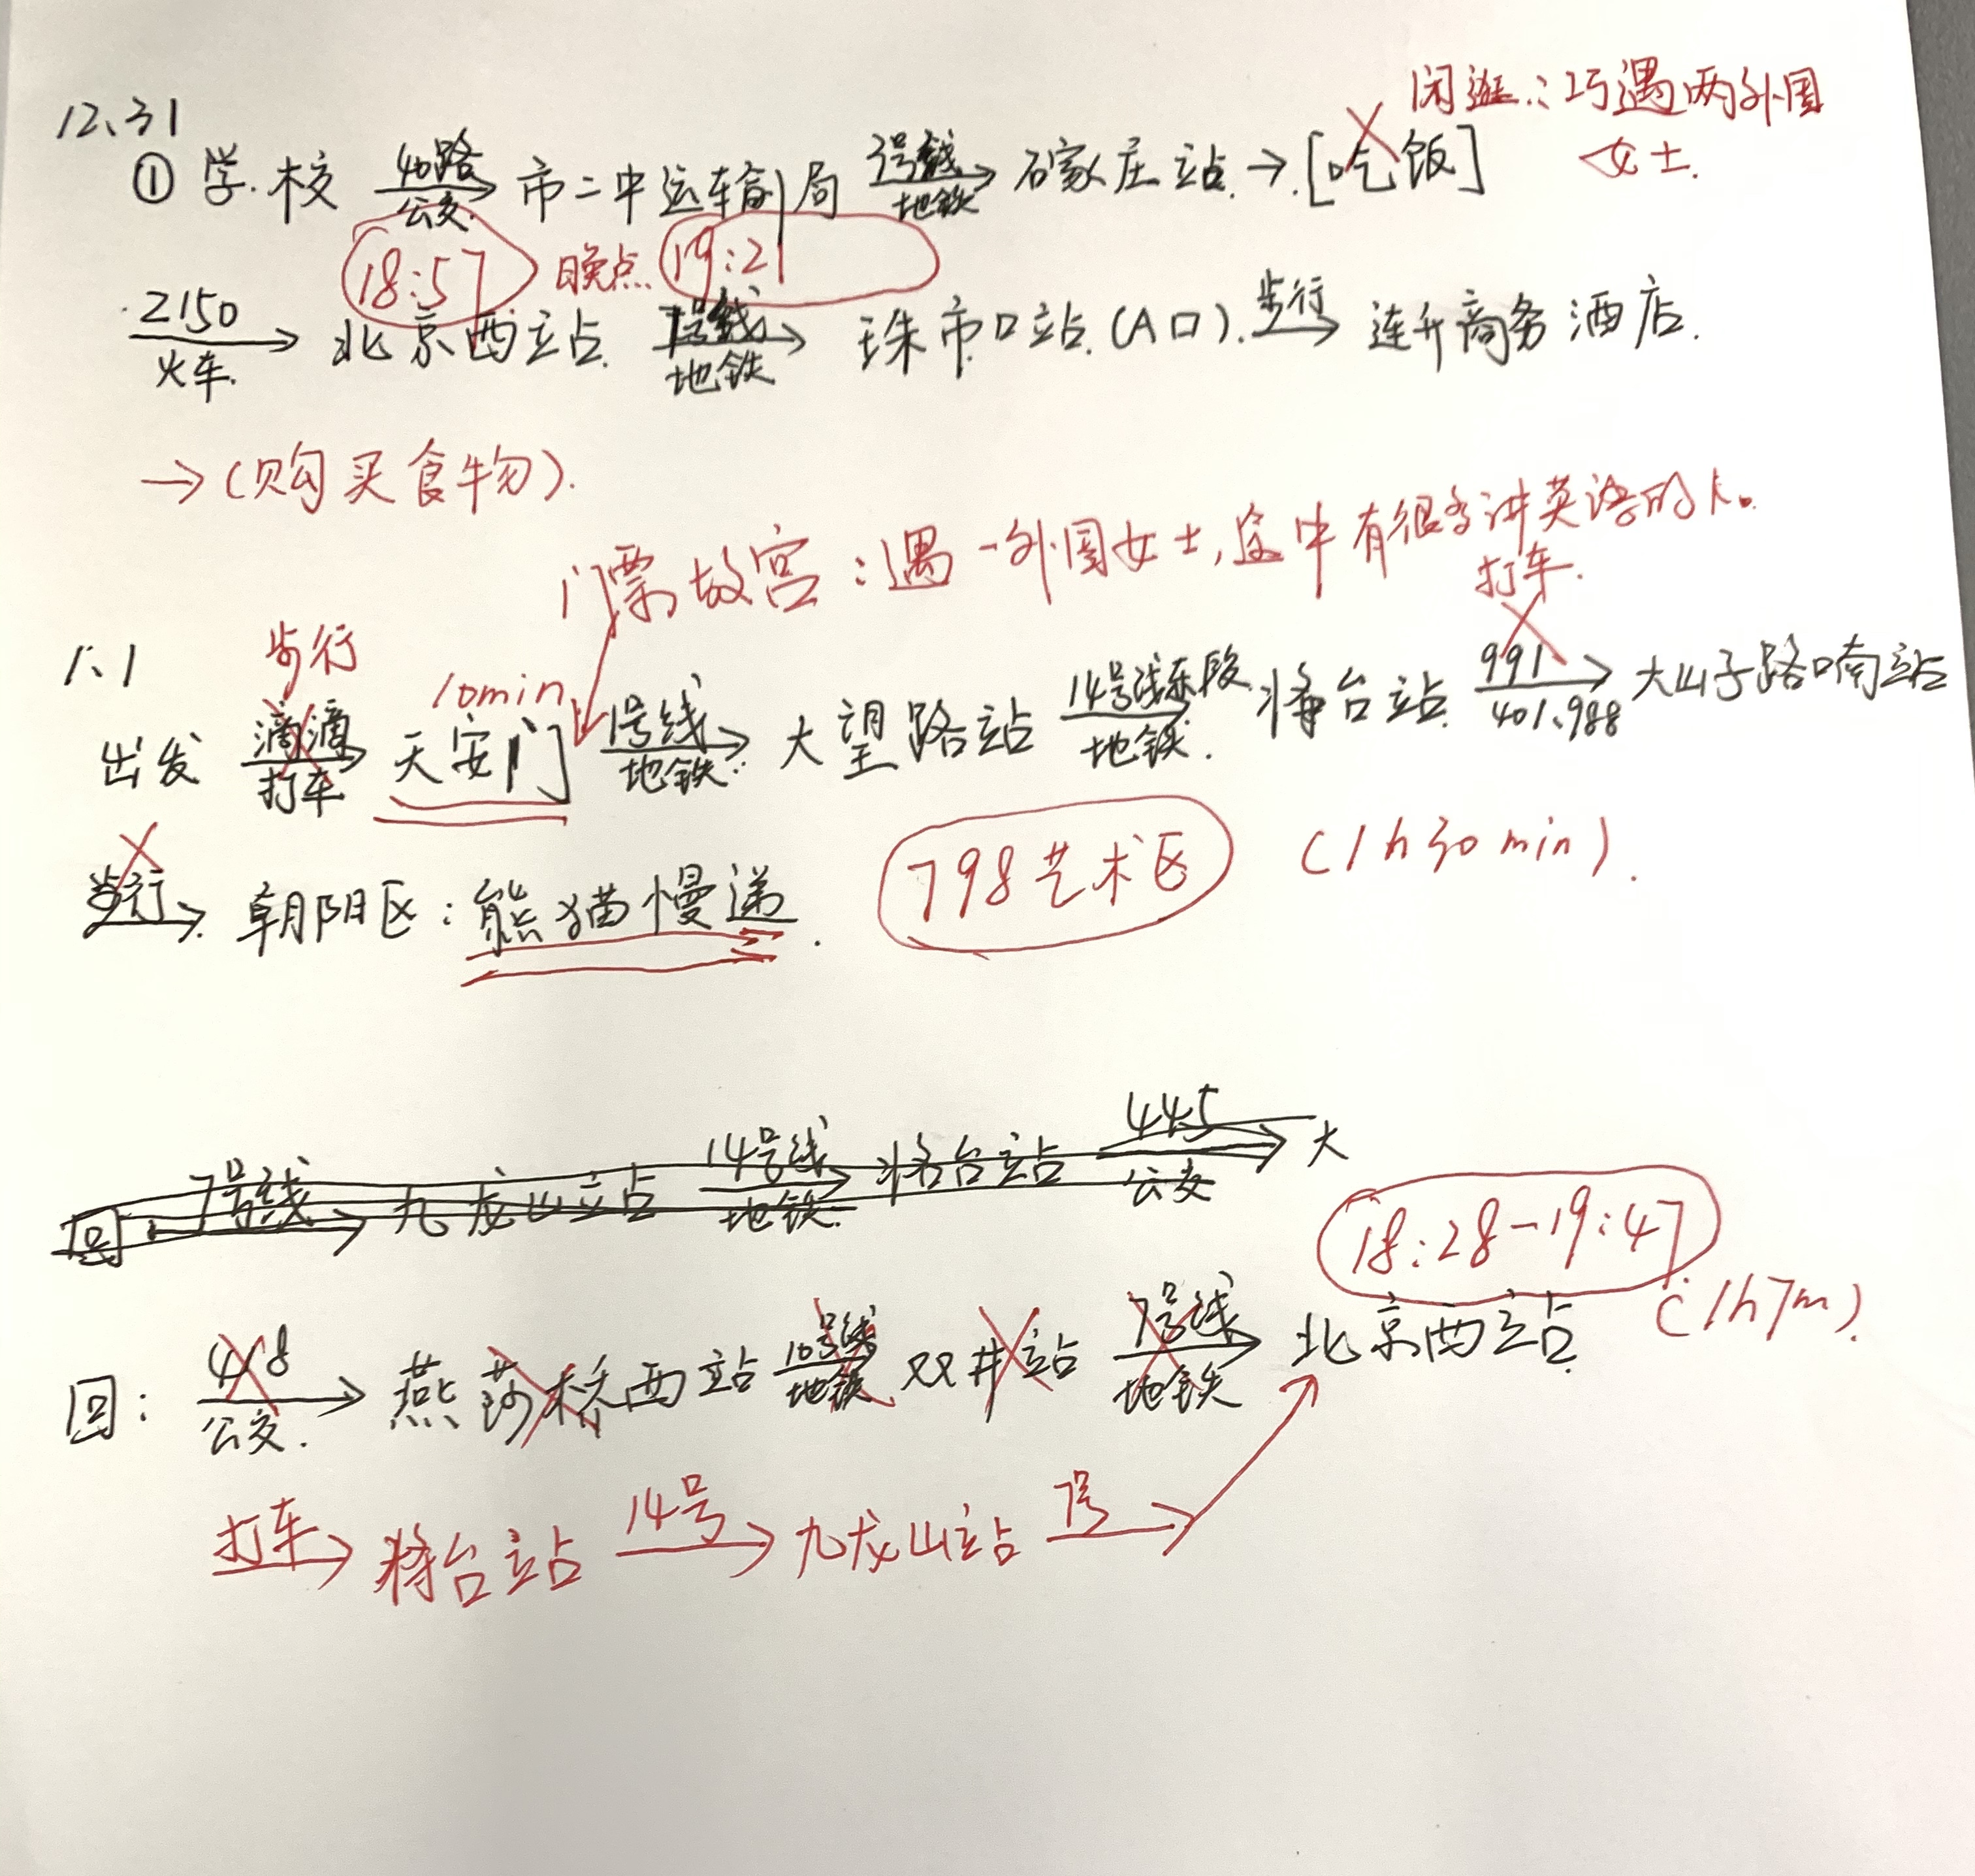 闲逛:巧遇两外国
女士.
12、31
① 学校 40路 公交 → 市二中运车制局 2号线 地铁 → 石家庄站 → [吃饭]
18:57 晚点 19:21
2150 火车 → 北京西站 7号线 地铁 → 珠市口站(A口) 步行 → 连升商务酒店.
→(购买食物).
门票故宫:遇一外国女士,途中有很多讲英语的人。
打车.
步行 10min
1、1
出发 滴滴 打车 → 天安门] 1号线 地铁 → 大望路站 14号线东段 地铁 → 将台站 991 401、988 → 大山子路口南站
步行 → 朝阳区:熊猫慢递. 798艺术区 (1h30min).
回: 7号线 → 九龙山站 14号线 地铁 → 将台站 445 公交 → 大
18:28-19:47
(1h7m).
回: 418 公交 → 燕莎桥西站 10号线 地铁 → 双井站 7号线 地铁 → 北京西站
打车 → 将台站 14号 → 九龙山站 7号 →